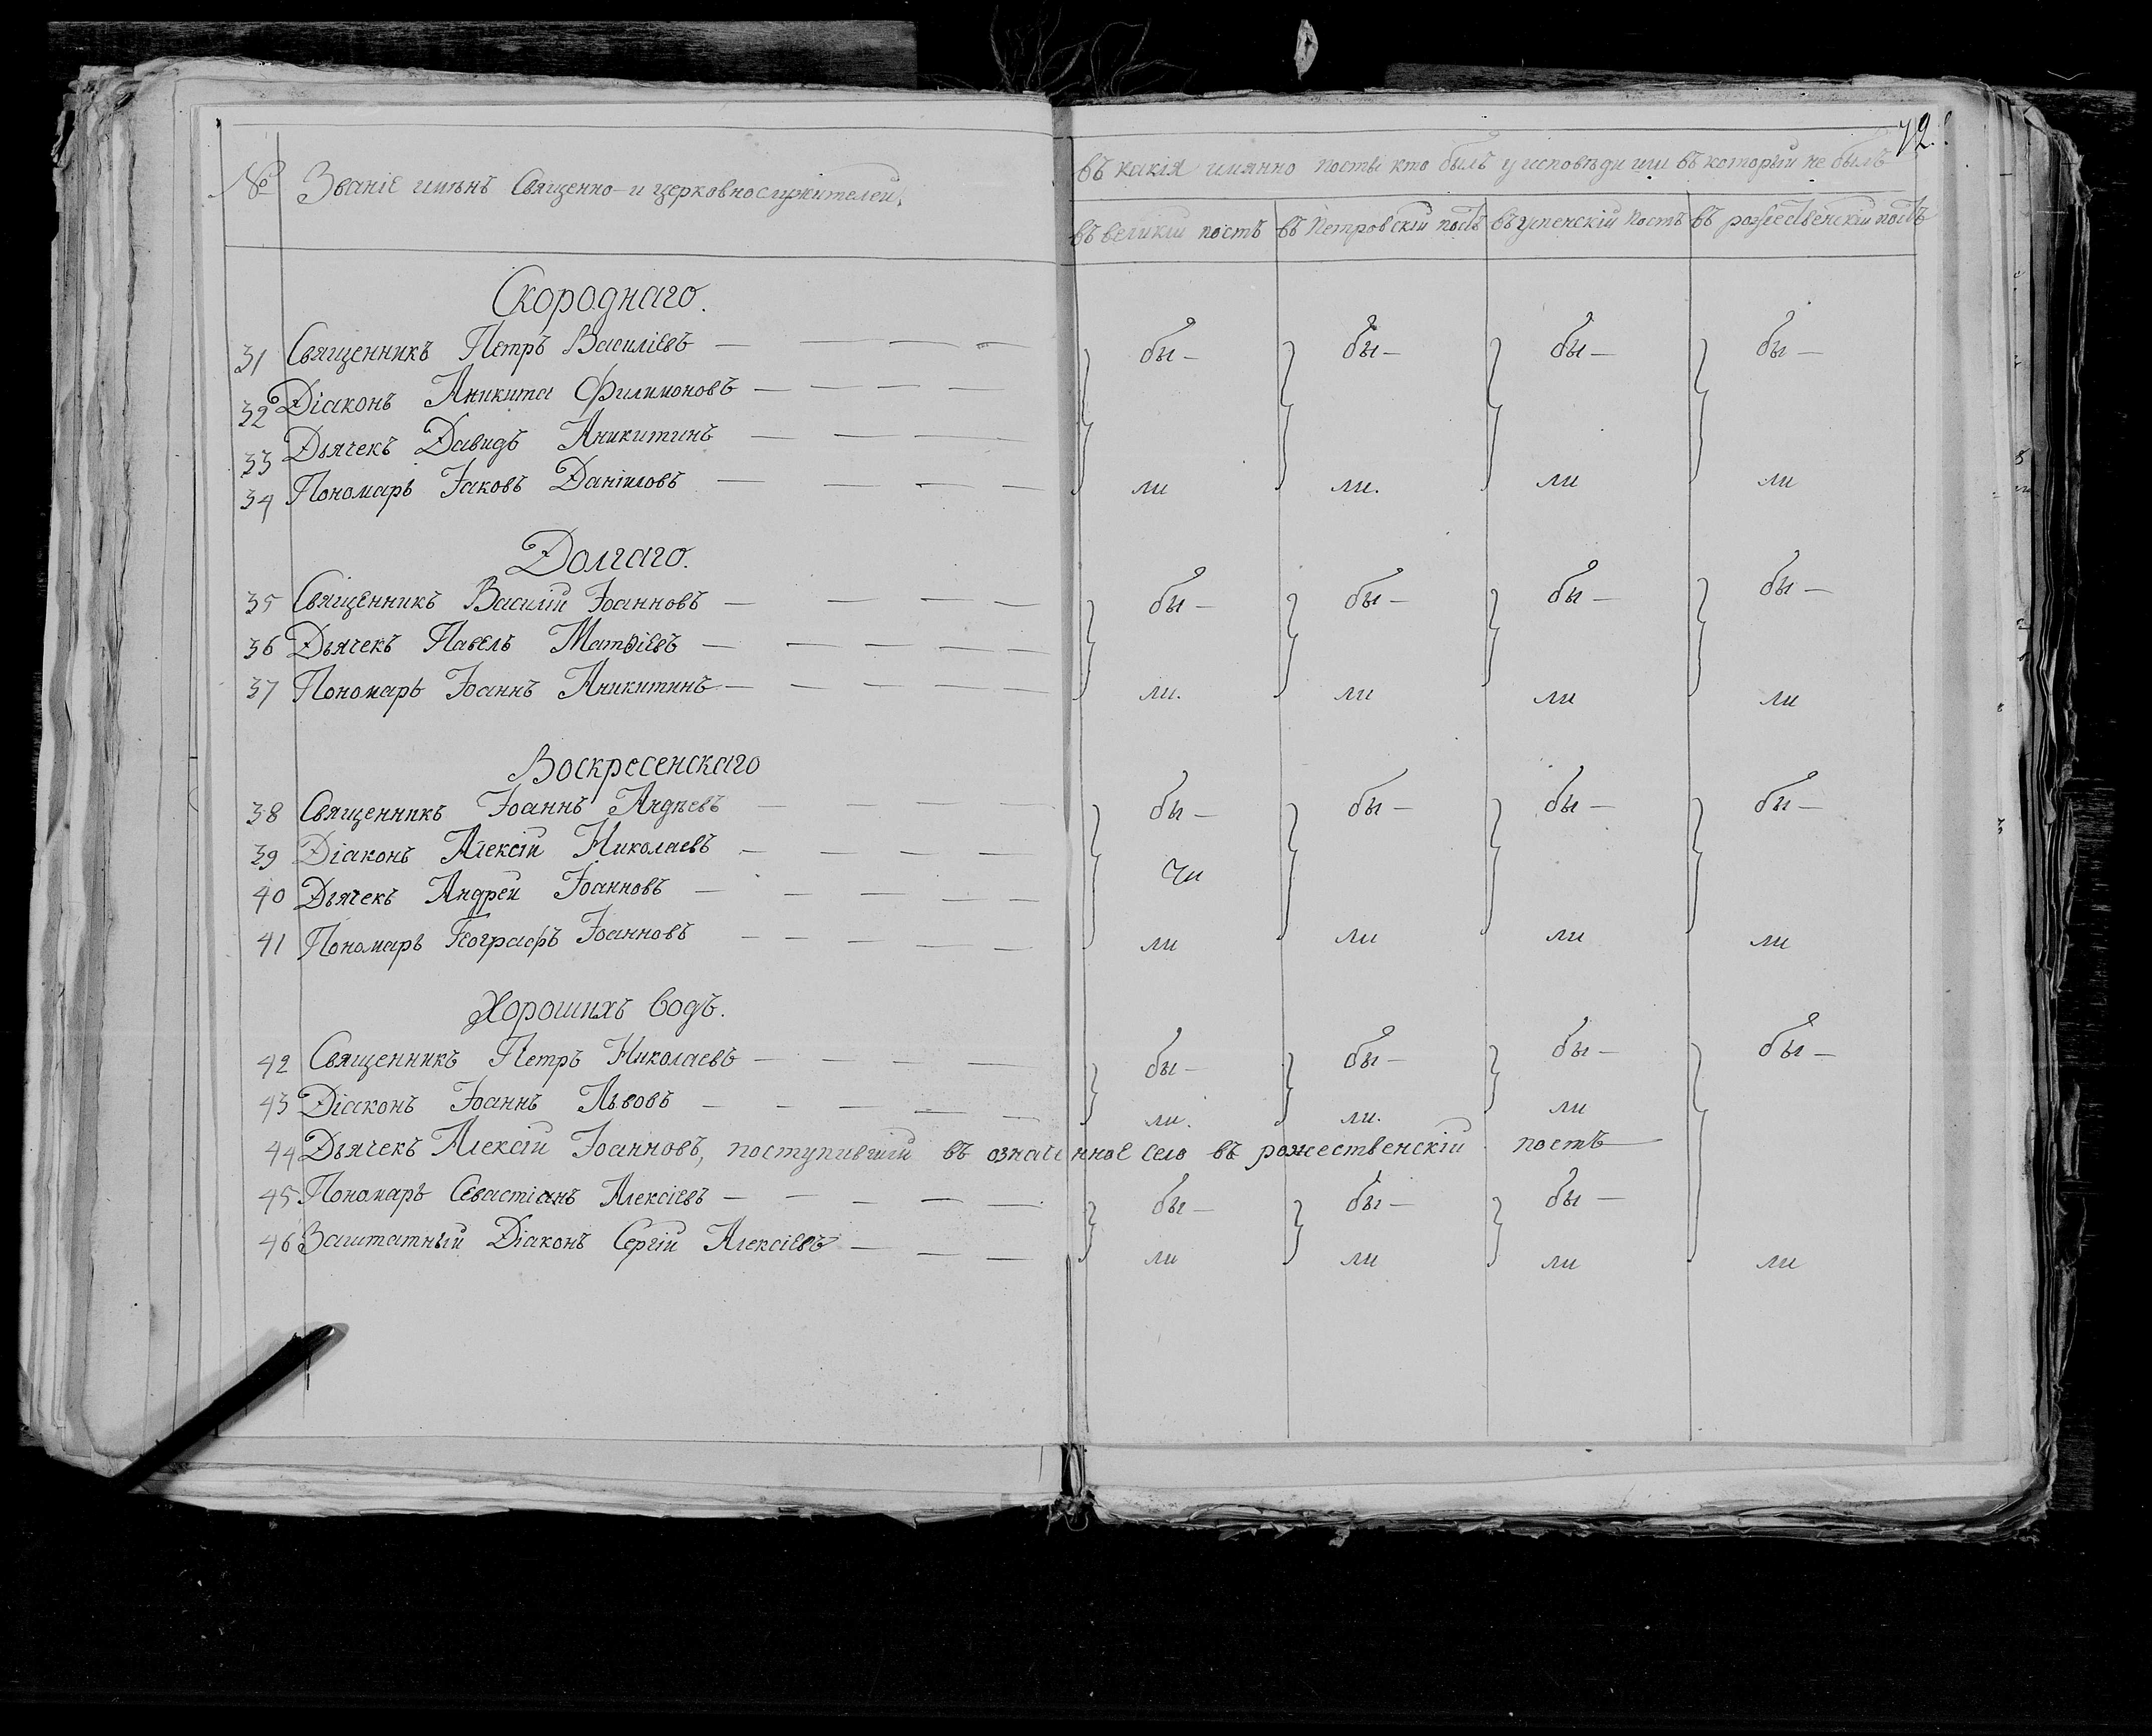 72.
№ Званіе имянъ Священно- и церковнослужителей. въ какія имянно посты кто былъ у исповѣди или въ который не былъ
въ великій постъ въ Петровскій постъ въ успенскій постъ въ рожественскій постъ
Скороднаго.
31 Священникъ Петръ Василіевъ — — — — бы — бы — бы — бы —
32 Діаконъ Аникита Филимоновъ — — — —
33 Дьячекъ Давидъ Аникитинъ — — — —
34 Пономарь Іаковъ Даніиловъ — — — — ли ли. ли ли
Долгаго.
35 Священникъ Василій Іоанновъ — — — — бы — бы — бы — бы —
36 Дьячекъ Павелъ Матѳіевъ — — — — —
37 Пономарь Іоаннъ Аникитинъ — — — — — ли. ли ли ли
Воскресенскаго
38 Священникъ Іоаннъ Андѣевъ — — — — бы — бы — бы — бы —
39 Діаконъ Алексій Николаевъ — — — — —
40 Дьячекъ Андрей Іоанновъ — — — — —
41 Пономарь Іоанновъ — — — — — — ли ли ли ли
Хорошихъ водъ.
42 Священникъ Петръ Николаевъ — — — — бы — бы — бы — бы —
43 Діаконъ Іоаннъ Львовъ — — — — — ли. ли. ли
44 Дьячекъ Алексій Іоанновъ, поступившій въ означенное село въ рожественскій постъ —
45 Пономарь Севастіанъ Алексіевъ — — — — — бы — бы — бы —
46 Заштатный Діаконъ Сергій Алексіевъ — — — ли ли ли ли